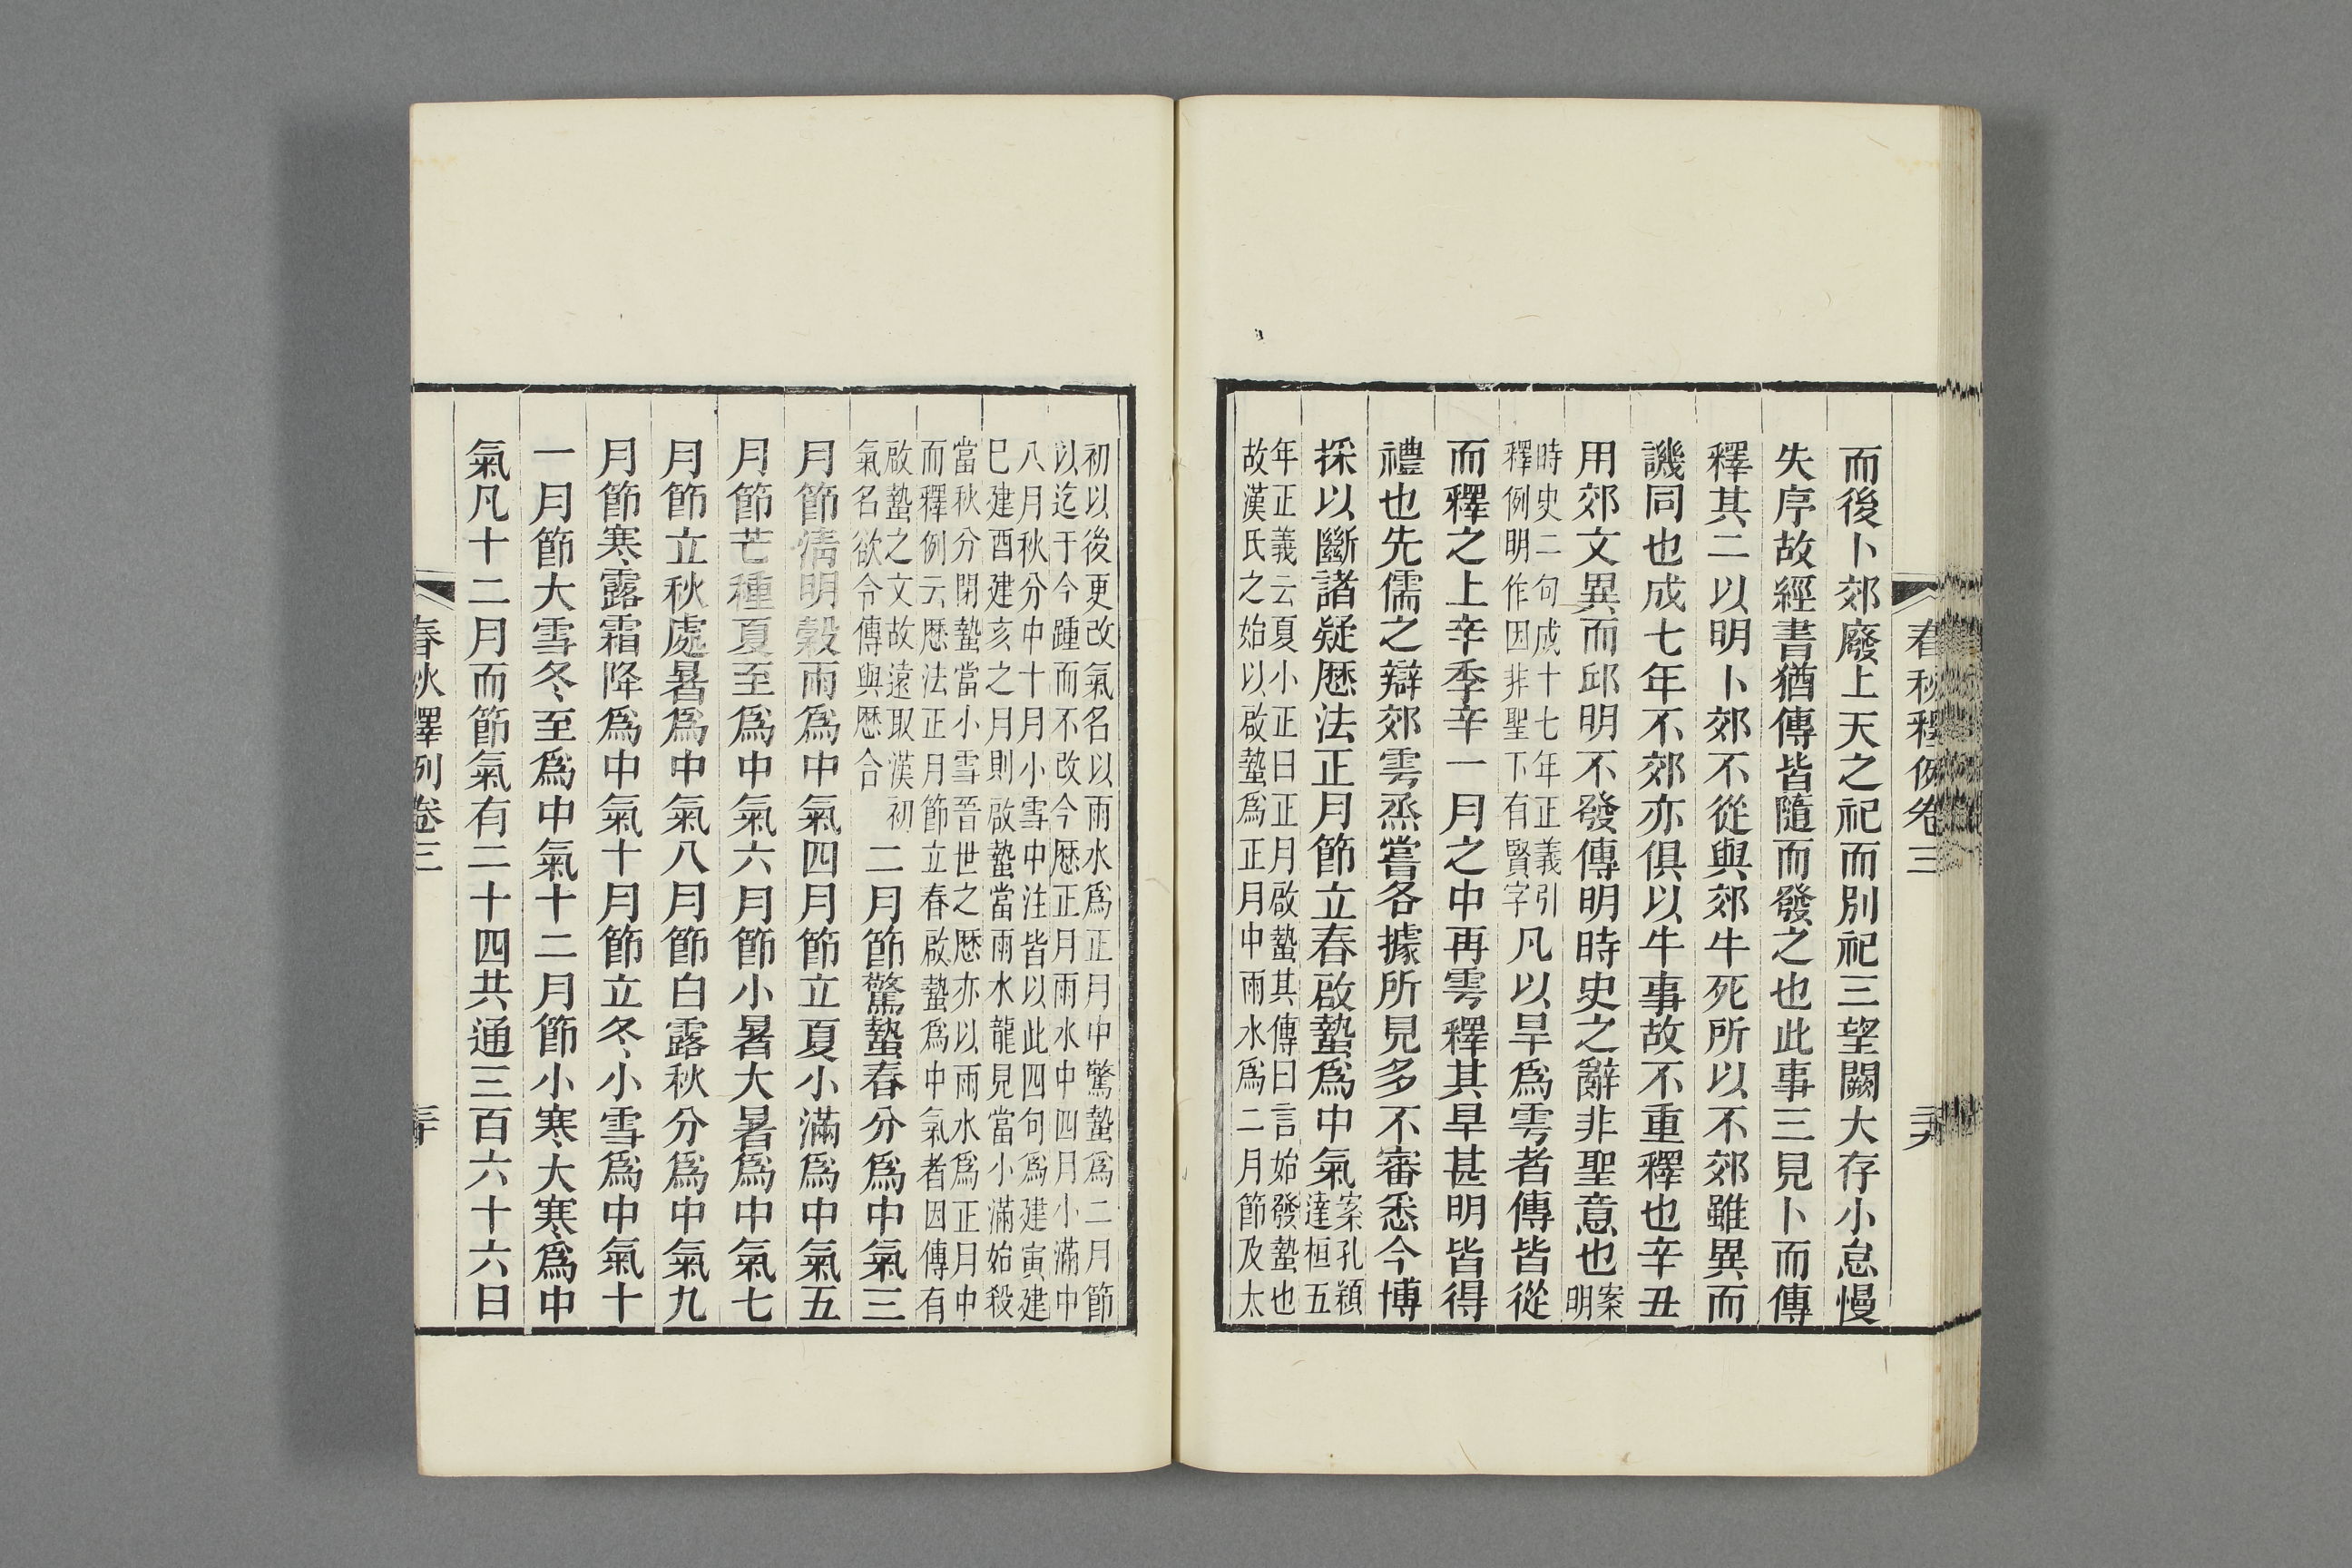 春秋釋例卷三
而後卜郊廢上天之祀而別祀三望闕大存小怠慢
失序故經書猶傳皆隨而發之也此事三見卜而傳
釋其二以明卜郊不從與郊牛死所以不郊雖異而
譏同也成七年不郊亦俱以牛事故不重釋也辛丑
用郊文異而邱明不發傳明時史之辭非聖意也案
明
時史二句成十七年正義引
釋例明作因非聖下有賢字
凡以旱爲雩者傳皆從
而釋之上辛季辛一月之中再雩釋其旱甚明皆得
禮也先儒之辯郊雩烝嘗各據所見多不審悉今博
採以斷諸疑厯法正月節立春啟蟄爲中氣案孔穎
達桓五
年正義云夏小正曰正月啟蟄其傳曰言始發蟄也
故漢氏之始以啟蟄爲正月中雨水爲二月節及太
初以後更改氣名以雨水爲正月中驚蟄爲二月節
以迄于今踵而不改今厯正月雨水中四月小滿中
八月秋分中十月小雪中注皆以此四句爲建寅建
巳建酉建亥之月則啟蟄當雨水龍見當小滿始殺
當秋分閉蟄當小雪晉世之厯亦以雨水爲正月中
而釋例云厯法正月節立春啟蟄爲中氣者因傳有
啟蟄之文故遠取漢初
氣名欲令傳與厯合
二月節驚蟄春分爲中氣三
月節清明穀雨爲中氣四月節立夏小滿爲中氣五
月節芒種夏至爲中氣六月節小暑大暑爲中氣七
月節立秋處暑爲中氣八月節白露秋分爲中氣九
月節寒露霜降爲中氣十月節立冬小雪爲中氣十
一月節大雪冬至爲中氣十二月節小寒大寒爲中
氣凡十二月而節氣有二十四共通三百六十六日
春秋釋例卷三